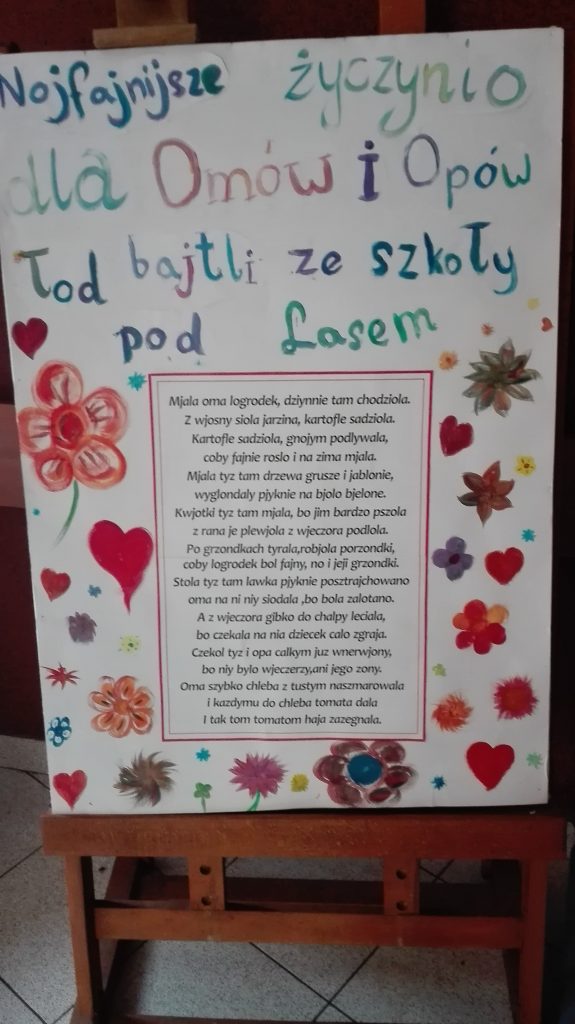 Nojfajnijsze życzynio
dla Omów i Opów
Łod bajtli ze szkoły
pod Lasem
Mjala oma logrodek, dziynnie tam chodziola.
Z wjosny siola jarzina, kartofle sadziola.
Kartofle sadziola, gnojym podlywala,
coby fajnie roslo i na zima mjala.
Mjala tyz tam drzewa grusze i jablonie,
wyglondaly pjyknie na bjolo bjelone.
Kwjotki tyz tam mjala, bo jim bardzo pszola
z rana je plewjola z wjeczora podlola.
Po grzondkach tyrala,robjola porzondki,
coby logrodek bol fajny, no i jeji grzondki.
Stola tyz tam lawka pjyknie posztrajchowano
oma na ni niy siodala ,bo bola zalotano.
A z wjeczora gibko do chalpy leciala,
bo czekala na nia dziecek calo zgraja.
Czekol tyz i opa calkym juz wnerwjony,
bo niy bylo wjeczerzy,ani jego zony.
Oma szybko chleba z tustym naszmarowala
i kazdymu do chleba tomata dala
I tak tom tomatom haja zazegnala.